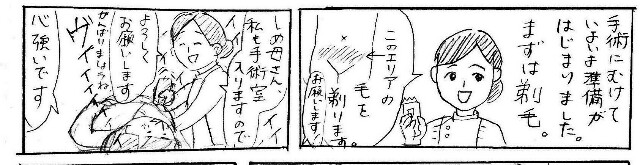 手術にむけて
いよいよ準備が
はじまりました。
まずは剃毛。
このエリアの
毛を
剃ります。
お願いします
しめ母さん、
私も手術室
入りますので
よろしく
お願いします
がんばりましょうね
ヴィィィィ
心強いです